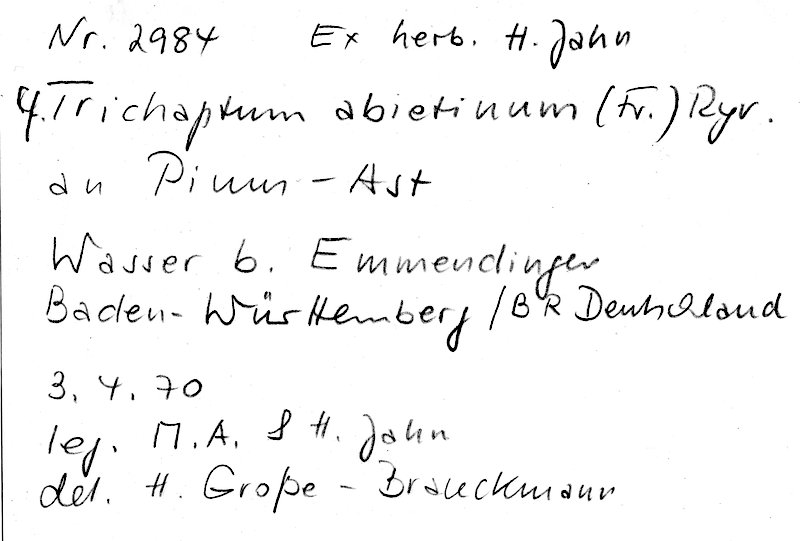 Nr. 2984 Ex herb. H. Jahn
4. Trichaptum abietinum (Fr.) Ryv.
an Pinus-Ast
Wasser b. Emmendingen
Baden-Württemberg / BR Deutschland
3. 4. 70
leg. M.A. & H. Jahn
det. H. Große-Brauckmann